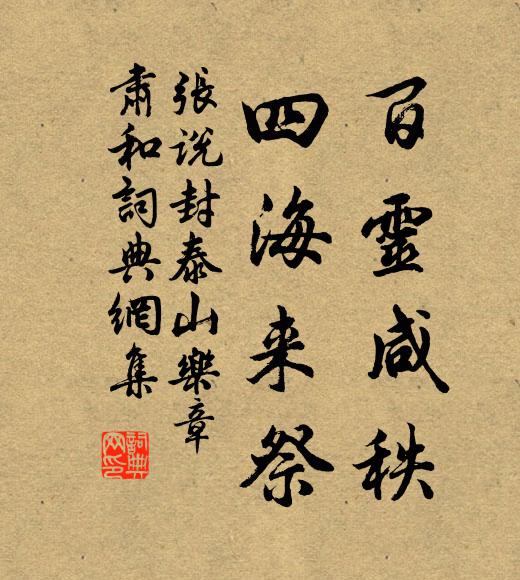 百靈咸秩
四海来祭
張说封泰山樂章
肅和詞典網集
詞典
网印